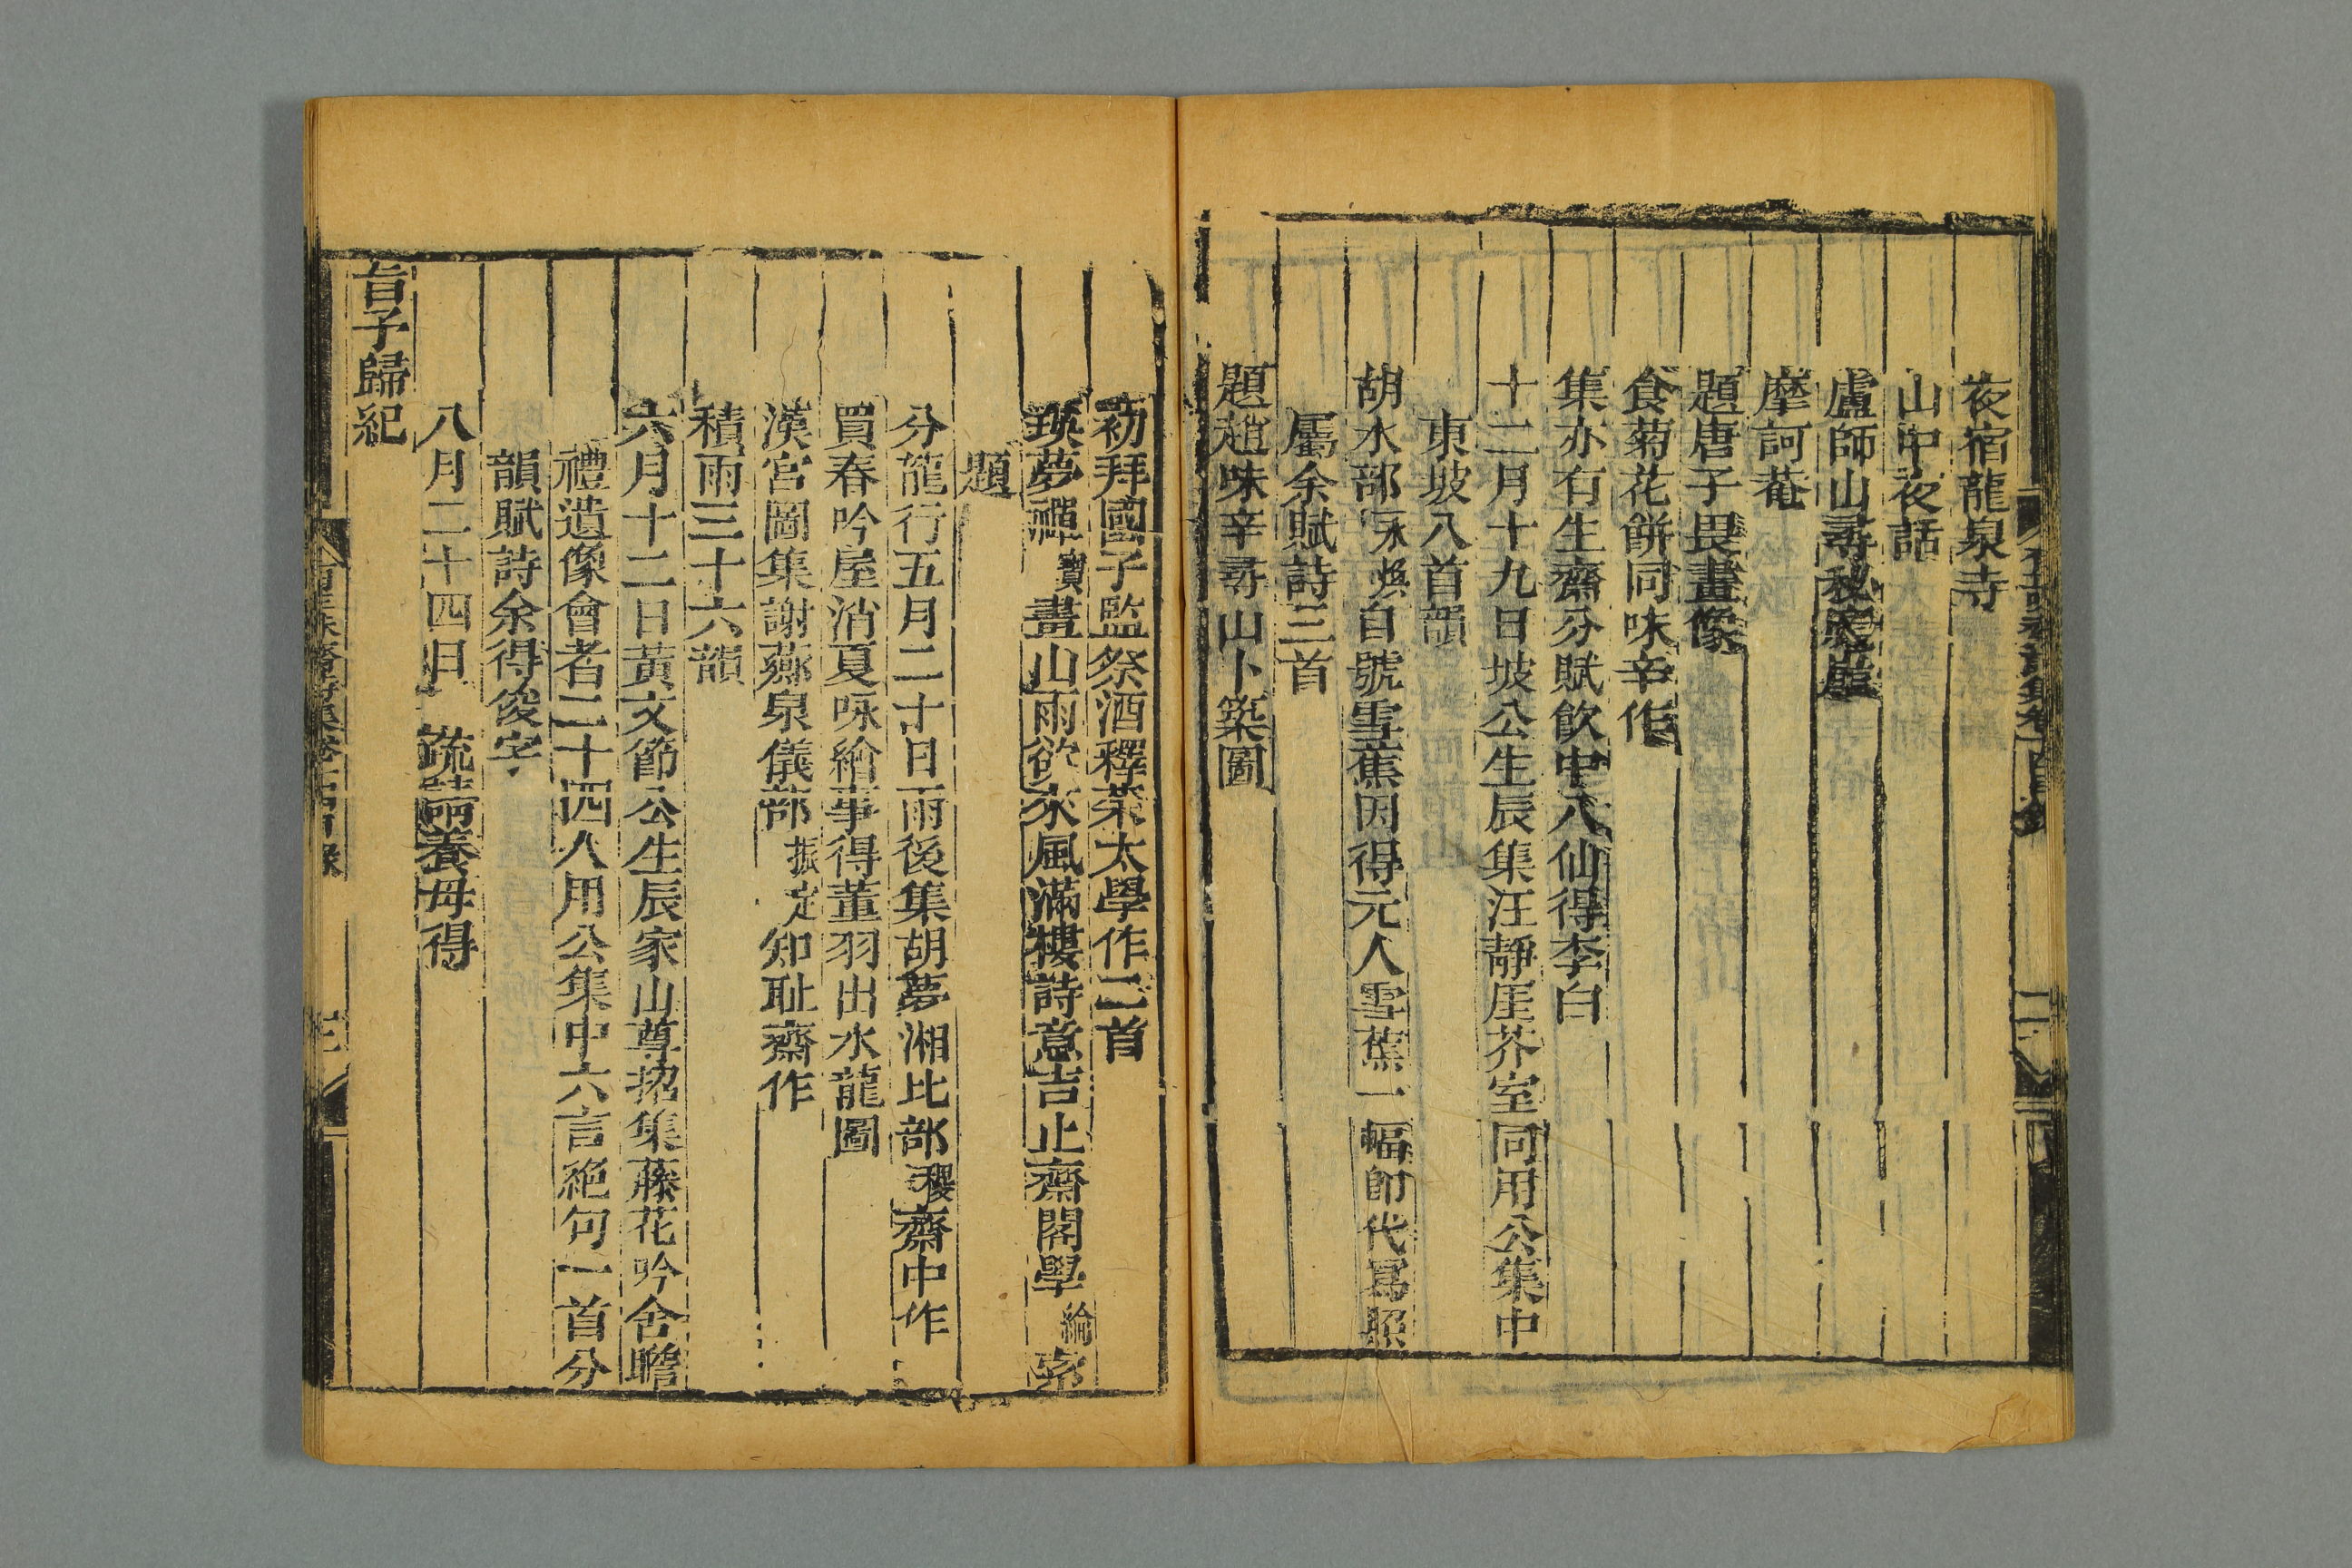 夜宿龍泉寺
山中夜話
盧師山尋秘魔崖
摩訶菴
題唐子畏畫像
食菊花餅同味辛作
集亦有生齋分賦飲中八仙得李白
十二月十九日坡公生辰集汪靜厓芥室同用公集中
東坡八首韻
胡水部永煥自號雪蕉因得元人雪蕉一幅卽代寫照
屬余賦詩三首
題趙味辛尋山卜築圖
二
初拜國子監祭酒釋菜太學作二首
瑛夢禪寶畫山雨欲來風滿樓詩意吉止齋閣學綸索
題
分龍行五月二十日雨後集胡夢湘比部稷齋中作
買春吟屋消夏咏繪事得董羽出水龍圖
漢宮圖集謝薌泉儀部振定知耻齋作
積雨三十六韻
六月十二日黃文節公生辰家山尊招集藤花吟舍瞻
禮遺像會者二十四人用公集中六言絕句一首分
韻賦詩余得俊字
八月二十四日 疏請養母得
旨予歸紀
三